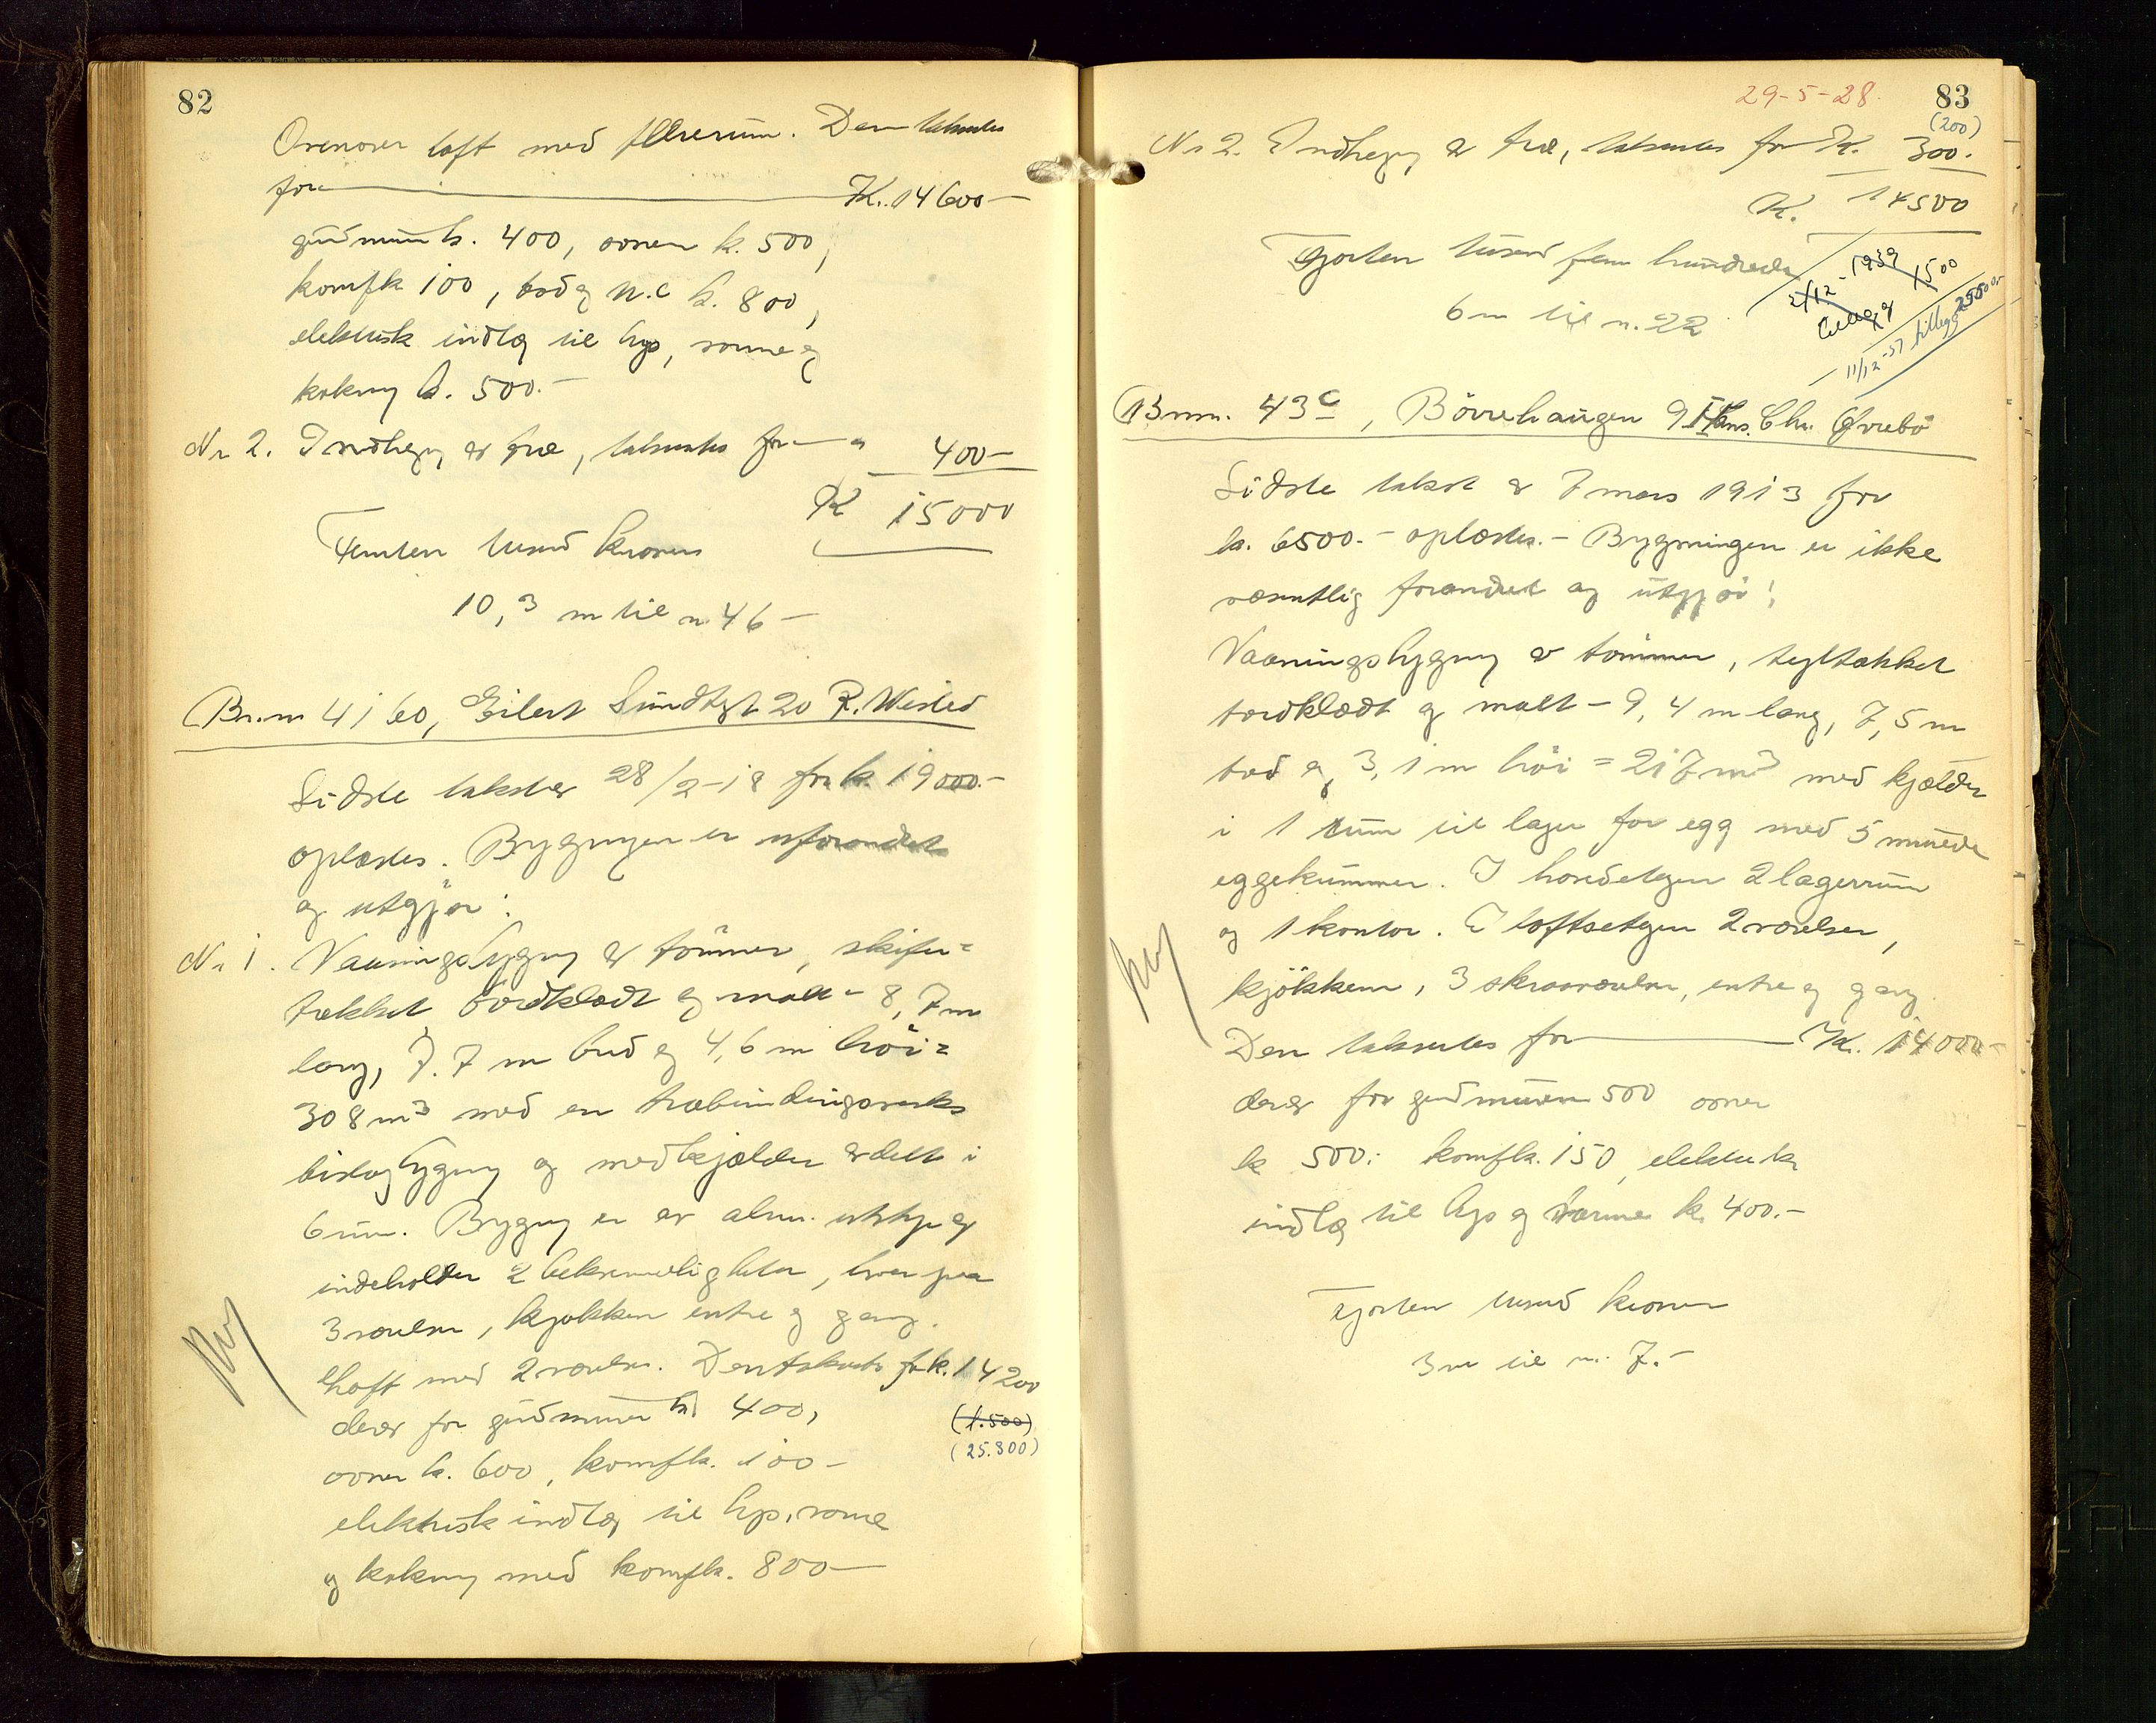 82
Ovenover loft med flere rum. Den takseres
for K. 14600-
grundmur k. 400, ovnen k. 500,
komf k 100, bad og W.C k. 800,
elektrisk indlæg til lys, varme og
kokning k. 500.-
Nr 2. Indhegn av træ, takseres for 400-
K 15000
Femten tusind kroner
10,3 m til n. 46-
Br.nr 4160, Eilert Sundtsgt 20 R. Wisted
Sidste takst er 28/2-18 for k. 19000.-
oplæstes. Bygningen er uforandret
og utgjør:
Nr 1. Vaaningsbygning av tømmer, skifer=
tækket bordklædt og malt - 8,7 m
lang, 7.7 m bred og 4,6 m høi=
308 m3 med en træbindingsverks
bislagbygning og med kjælder avdelt i
6 rum. Bygning er av alm. utstyr og
indeholder 2 bekvemmeligheter, hver paa
3 værelser, kjøkken entre og gang.
Loft med 2 værelser. Den takseres for k. 14200
derav for grundmur k 400,
(1.500)
(25.800)
ovner k. 600, komf k. 100-
elektrisk indlæg til lys, varme
og kokning med komf k. 800-
29-5-28.
83
(200)
Nr 2. Indhegn av træ, takseres for K. 300.-
K. 14500
Fjorten tusind fem hundrede
2/12-1939
tillegg 1500
11/12-57 tillegg
6 m til n. 22
Brnr. 43c, Børrehaugen 9 Hans. Chr. Øvrebø
Sidste takst er 7 mars 1913 for
k. 6500.- oplæstes.- Bygningen er ikke
væsentlig forandret og utgjør:
Vaaningsbygning av tømmer, tegltækket
bordklædt og malt - 9,4 m lang, 7,5 m
bred og 3,1 m høi = 217 m3 med kjælder
i 1 rum til lager for egg med 5 murede
eggekummer. I hovedetagen 2 lagerrum
og 1 kontor. I loftsetagen 2 værelser,
kjøkken, 3 skraaværelser, entre og gang.
Den takseres for K. 14000-
derav for grundmuren 500 ovner
k 500.- komf k. 150, elektrisk
indlæg til lys og varme k. 400.-
Fjorten tusind kroner
3 m til n. 7.-